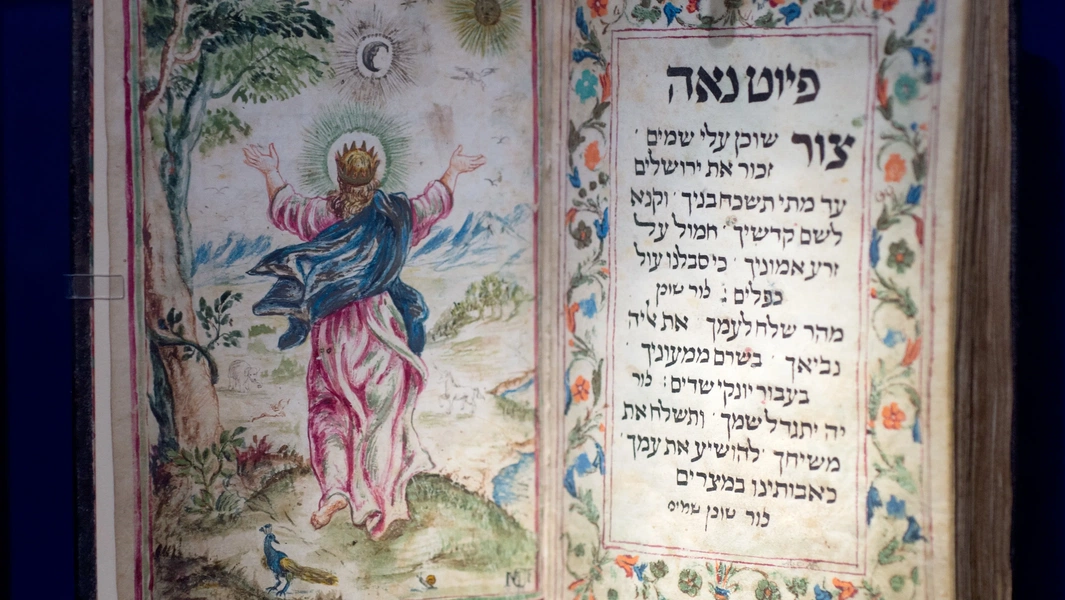 פיוט נאה
צור שוכן עלי שמים
זכור את ירושלים
עד מתי תשכח בניך וקנא
לשם קדשיך חמול על
זרע אמוניך כי סבלנו עול
כפלים : צור שוכן
מהר שלח לעמך את איה
נביאך בשרם ממעוניך
בעבור יונקי שדים : צור
יה יתגדל שמך ותשלח את
משיחך להושיע את עמך
כאבותינו במצרים
צור שוכן שמים